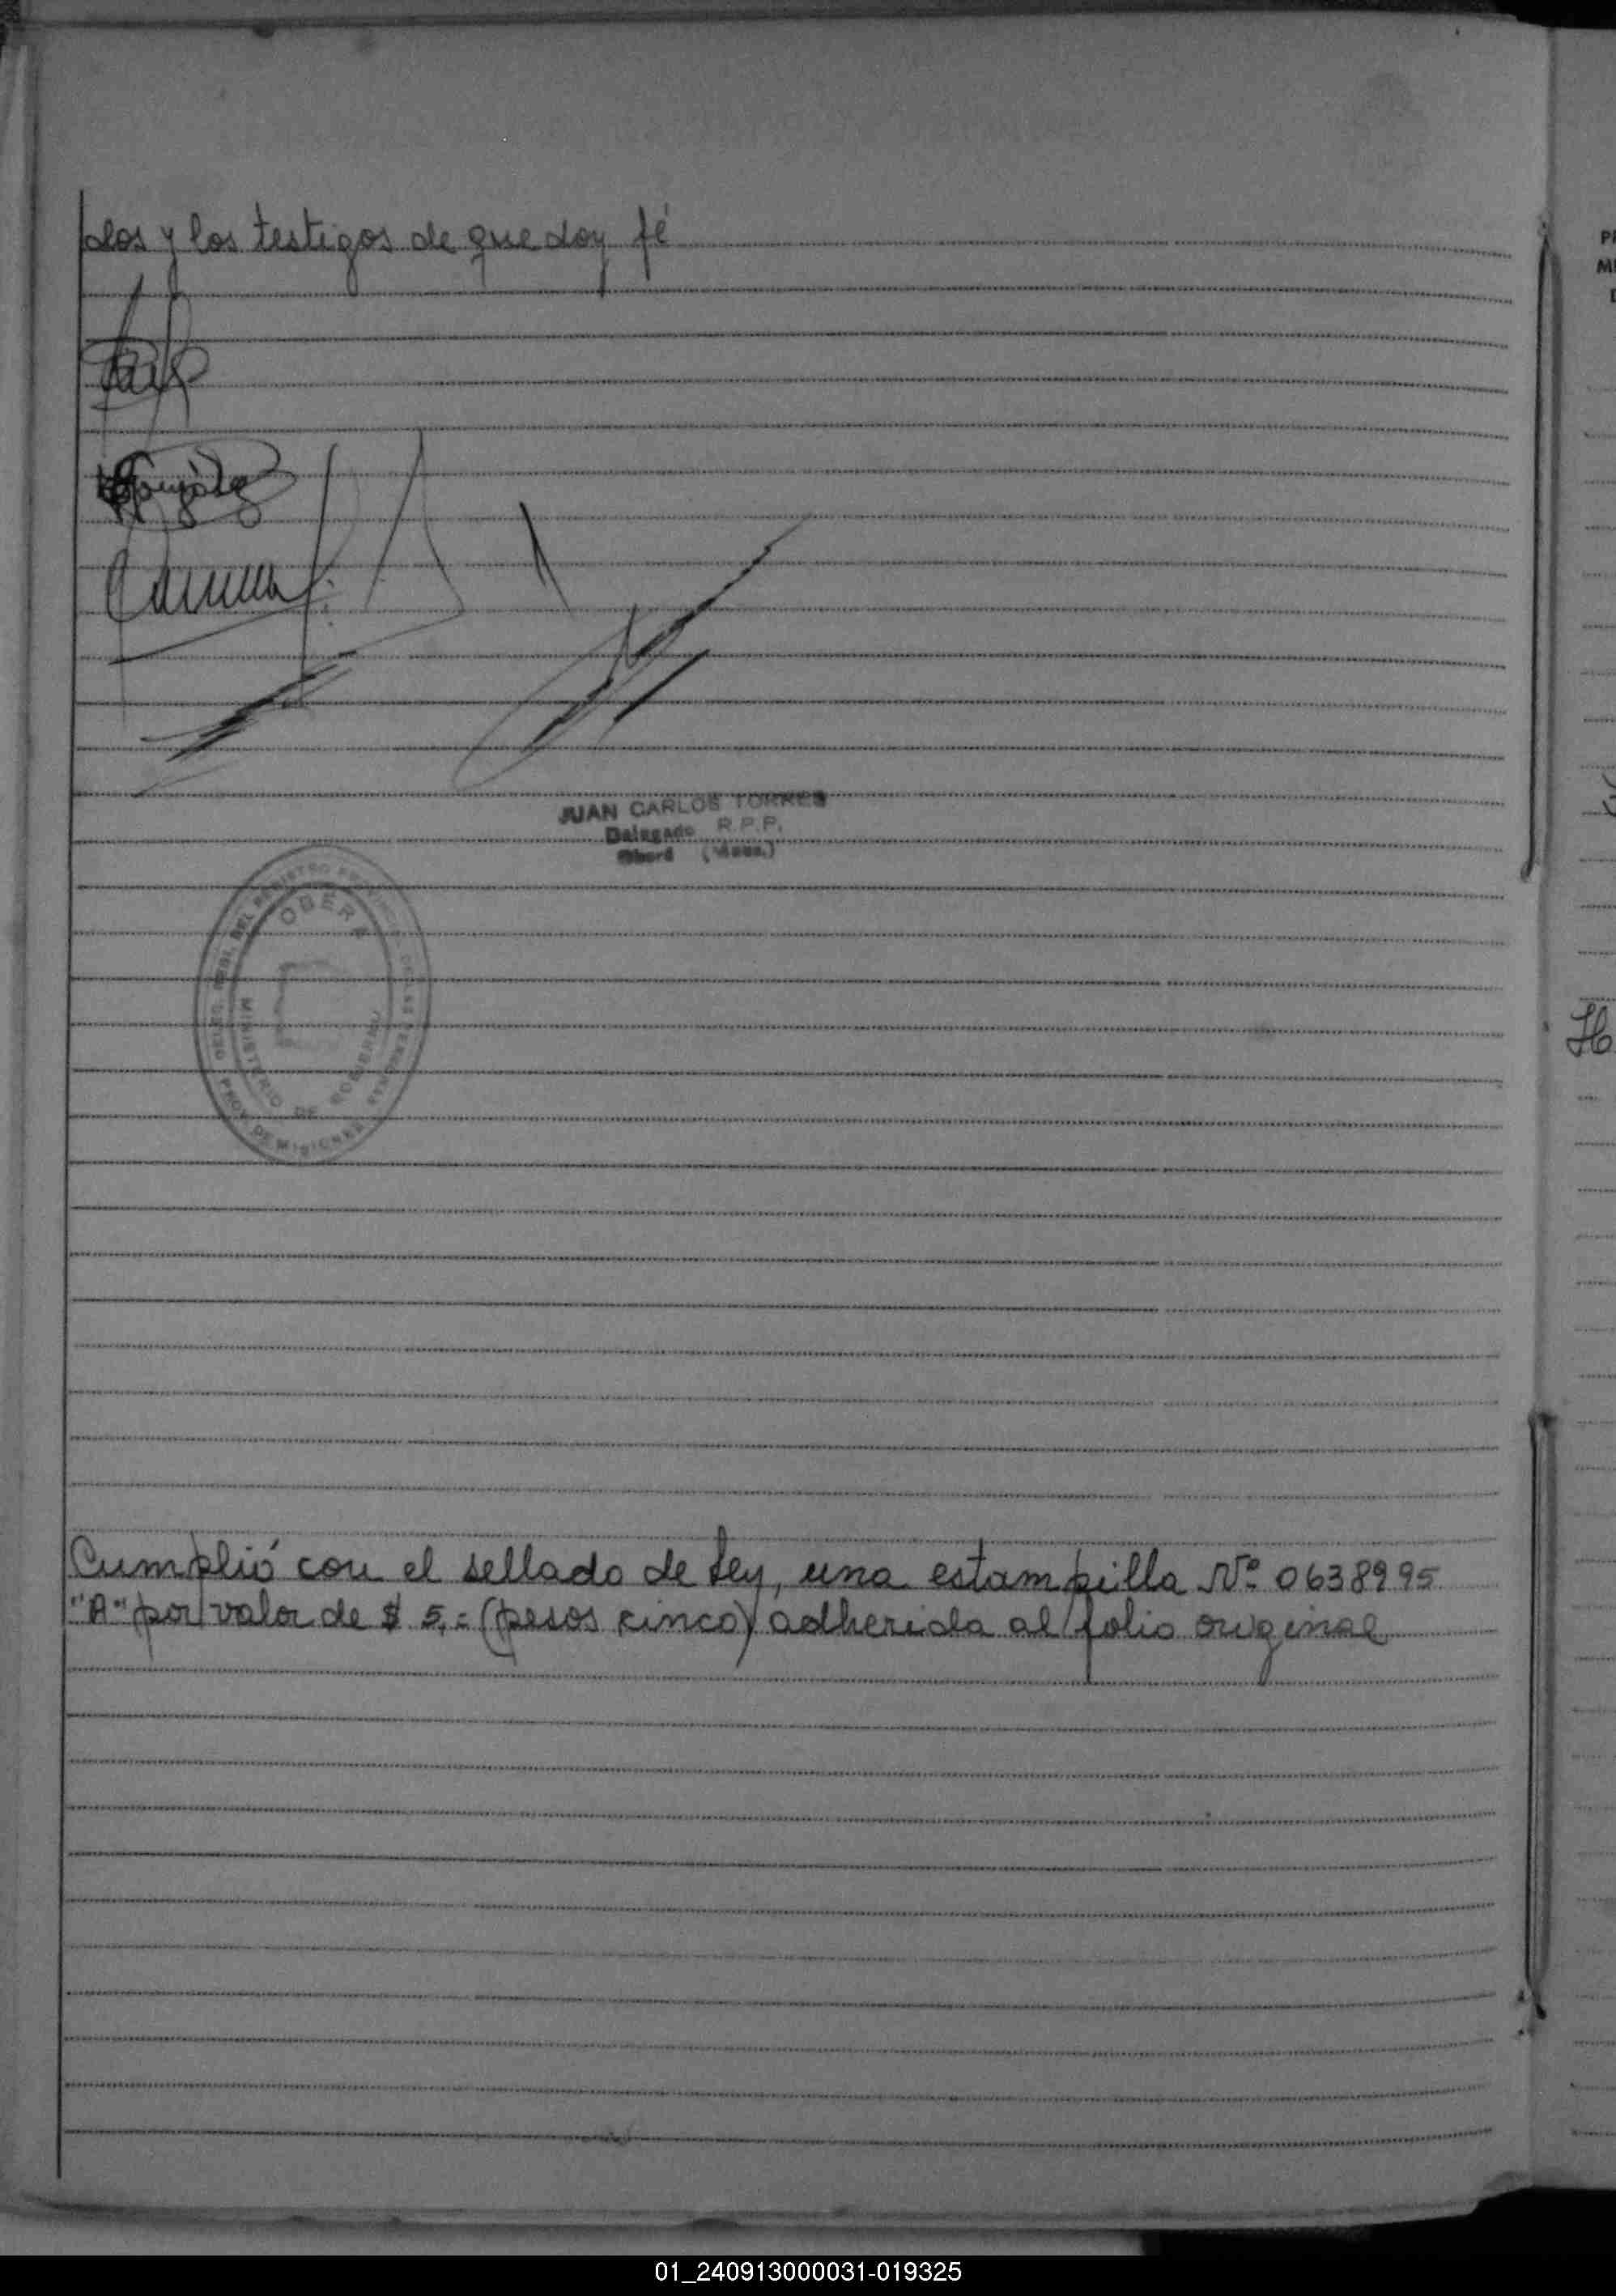 dos y los testigos de que doy fé
JUAN CARLOS TORRES
Delegado R.P.P.
Oberá (Mnes.)
OBERA
MINISTERIO DE GOBIERNO
DEL REGISTRO PROVINCIAL DE LAS PERSONAS
PROV. DE MISIONES
Cumplió con el sellado de Ley, una estampilla Nº 0638995
"A" por valor de $ 5,= (pesos cinco) adherida al folio original
01_240913000031-019325